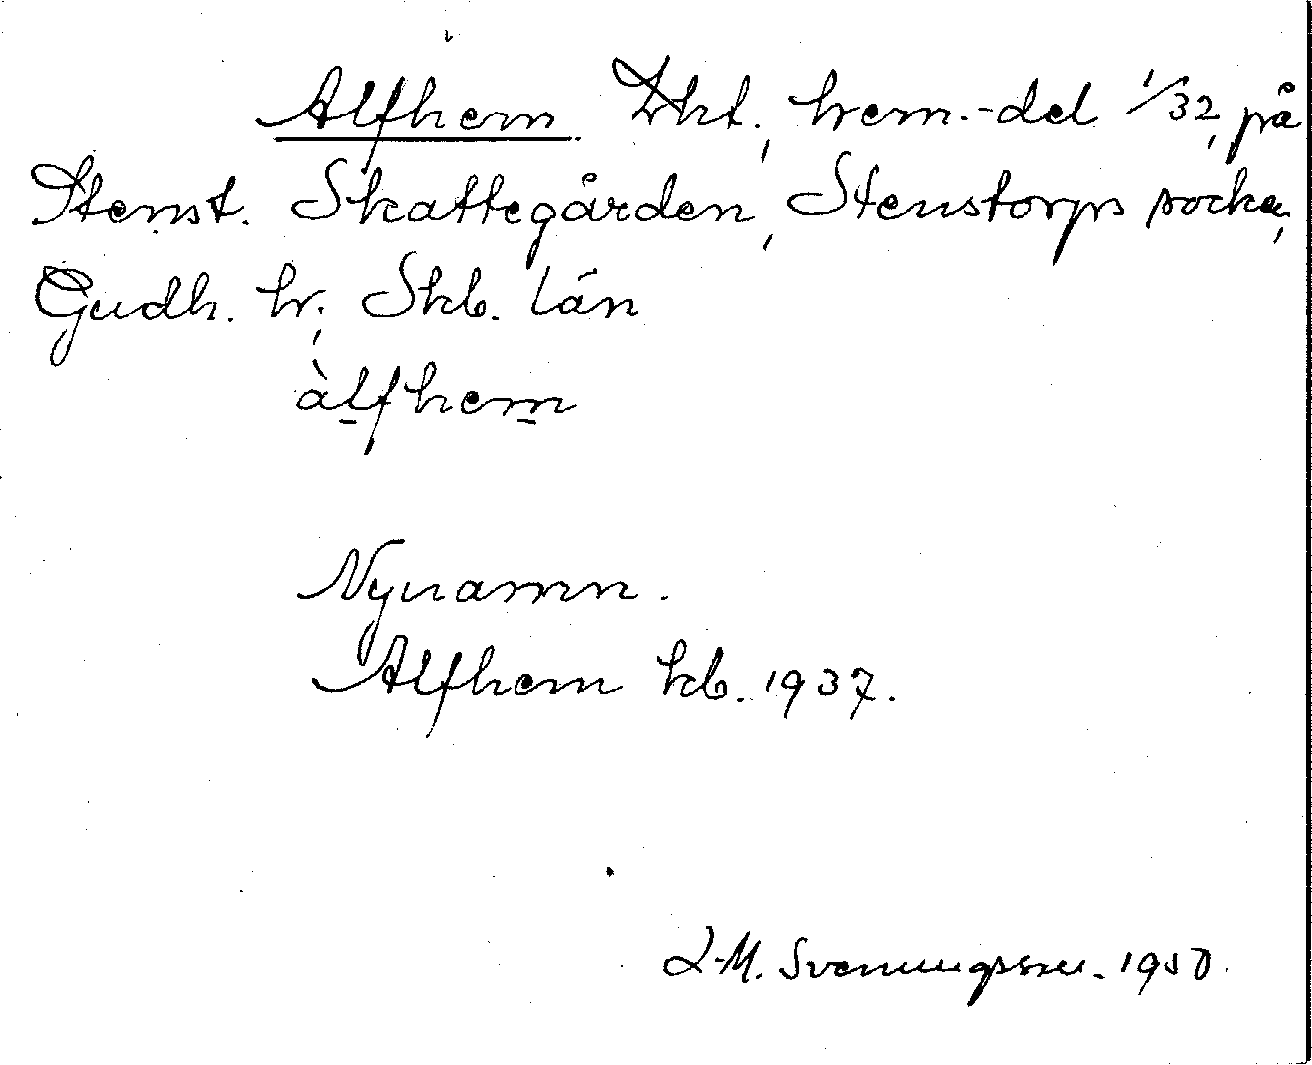 Alfhem. Lht., hem.-del 1/32, på
Stenst. Skattegården, Stenstorps socken,
Gudh. hr., Skb. län
àlfhem
Nynamn.
Alfhem kb. 1937.
L-M. Svenungsson. 1950.